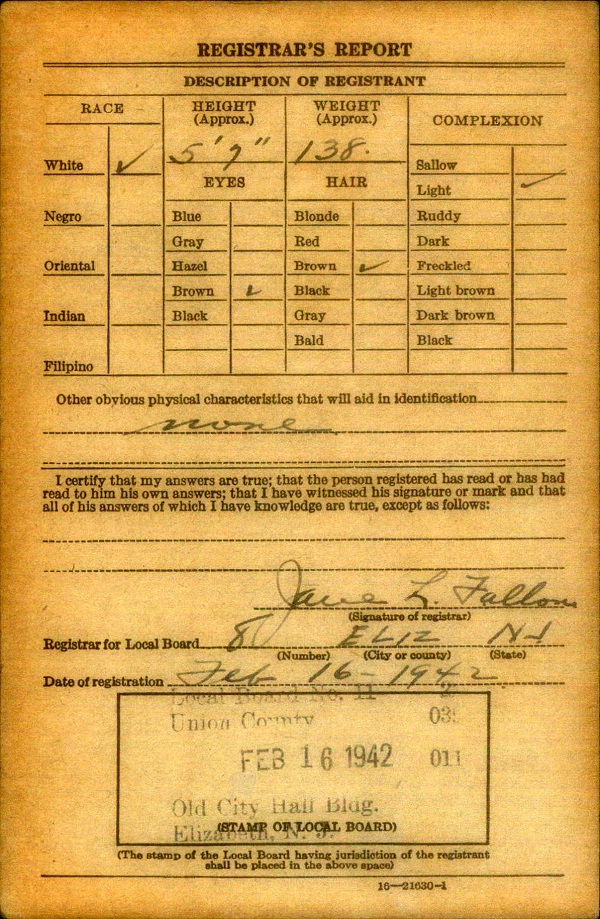 REGISTRAR'S REPORT
DESCRIPTION OF REGISTRANT
RACE
HEIGHT (Approx.)
WEIGHT (Approx.)
COMPLEXION
White ✓
5' 9"
138.
Sallow
EYES
HAIR
Light ✓
Negro
Blue
Blonde
Ruddy
Gray
Red
Dark
Oriental
Hazel
Brown ✓
Freckled
Brown ✓
Black
Light brown
Indian
Black
Gray
Dark brown
Bald
Black
Filipino
Other obvious physical characteristics that will aid in identification
none
I certify that my answers are true; that the person registered has read or has had
read to him his own answers; that I have witnessed his signature or mark and that
all of his answers of which I have knowledge are true, except as follows:
Jane L. Fallon
(Signature of registrar)
Registrar for Local Board 8 ELIZ NJ
(Number) (City or county) (State)
Date of registration Feb 16-1942
Local Board No. 11 2
Union County 039
FEB 16 1942 011
Old City Hall Bldg.
(STAMP OF LOCAL BOARD)
Elizabeth, N. J.
(The stamp of the Local Board having jurisdiction of the registrant
shall be placed in the above space)
16—21630-1